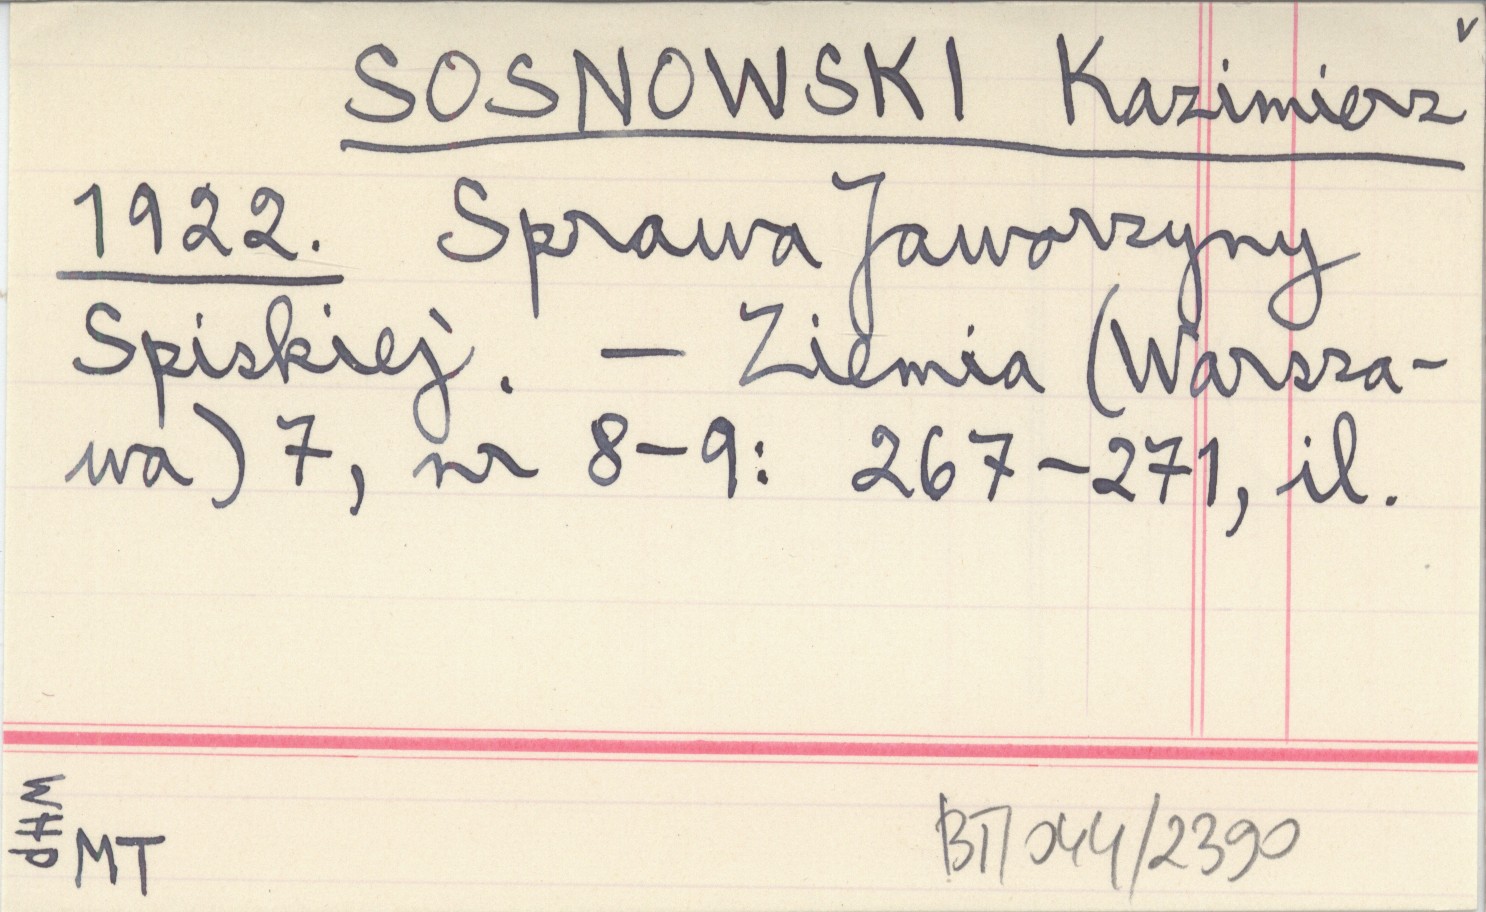 v
SOSNOWSKI Kazimierz
1922. Sprawa Jaworzyny
Spiskiej. — Ziemia (Warsza-
wa) 7, nr 8-9: 267-271, il.
WHP
MT